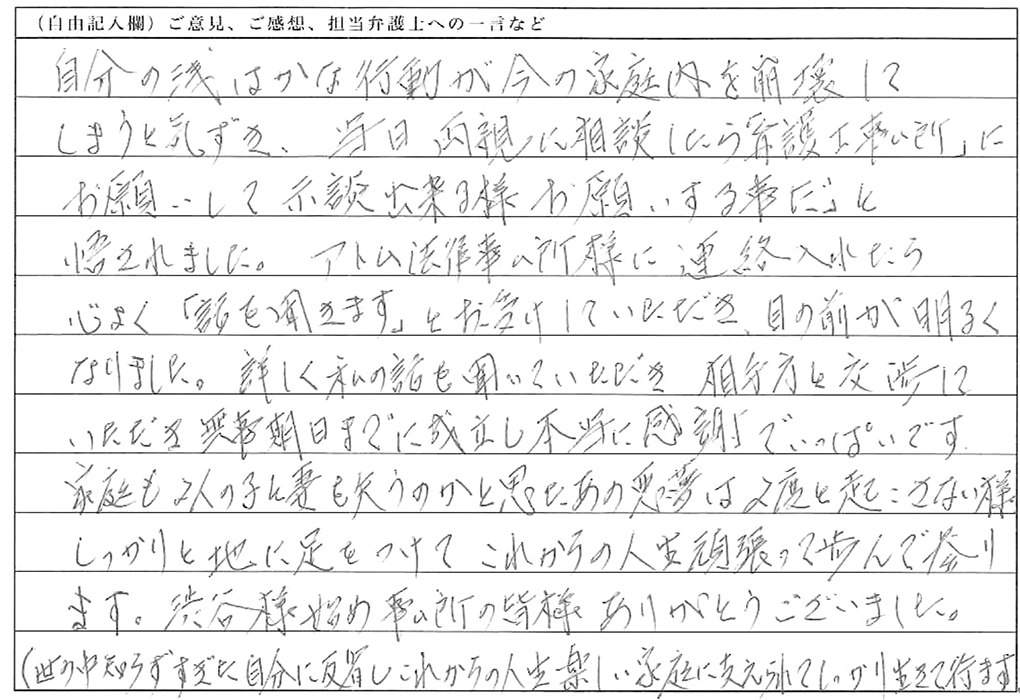 (自由記入欄)ご意見、ご感想、担当弁護士への一言など
自分の浅はかな行動が今の家庭内を崩壊して
しまうと気ずき、当日両親に相談したら「弁護士事ム所」に
お願いして示談出来る様お願いする事だ」と
悟されました。アトム法律事ム所様に連絡入れたら
心よく「話を聞きます」とお受けしていただき、目の前が明るく
なりました。詳しく私の話も聞いていただき相手方と交渉して
いただき無事期日までに成立し本当に感謝でいっぱいです。
家庭も2人の子と妻も失うのかと思ったあの悪夢は2度と起こさない様
しっかりと地に足をつけてこれからの人生頑張って歩んで参り
ます。渋谷様始め事ム所の皆様ありがとうございました。
(世の中知らずすぎた自分に反省しこれからの人生楽しい家庭に支えられてしっかり生きて行ます